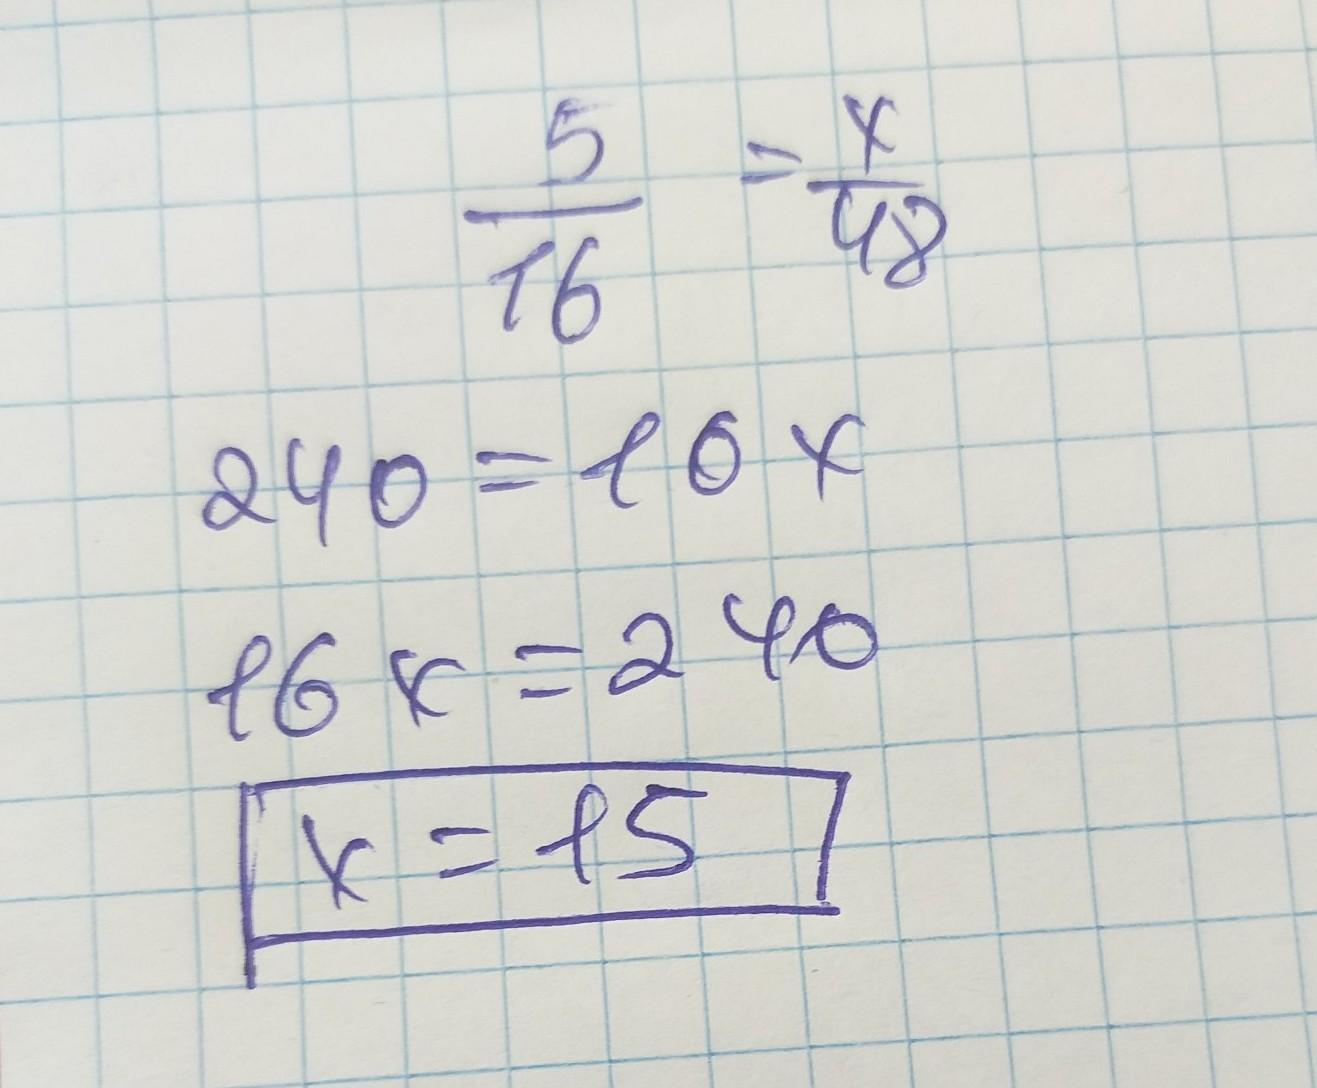 5/16 = x/48
240 = 16x
16x = 240
x = 15